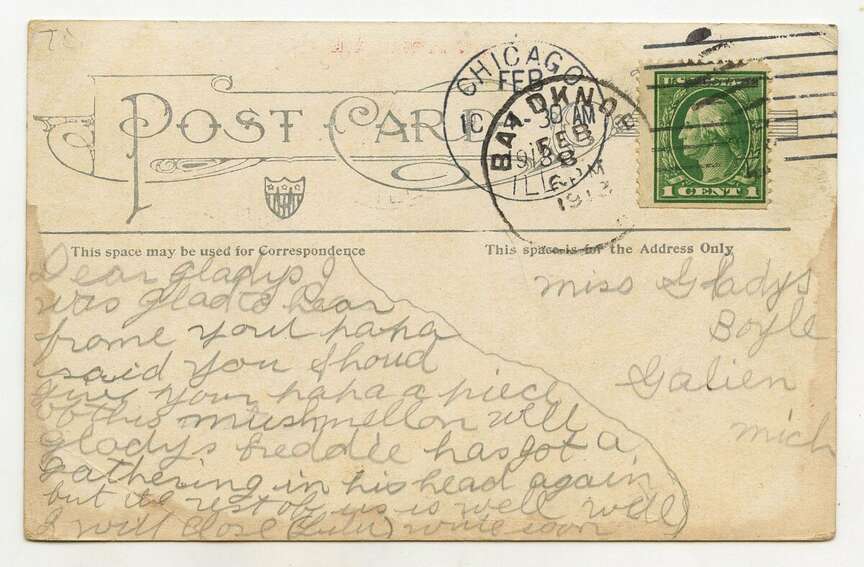 POST CARD
CHICAGO
FEB
30 AM
ILL
FEB
8
PM
U.S. POSTAGE
1 CENT 1
This space may be used for Correspondence
This space is for the Address Only
Dear Gladys I
was glad to hear
frome you papa
said you shoud
give your papa a piece
of this mushmellon well
Gladys freddie has got a
gathering in his head again
but the rest of us is well well
I will close (Lulu) write soon
Miss Gladys
Boyle
Galien
Mich